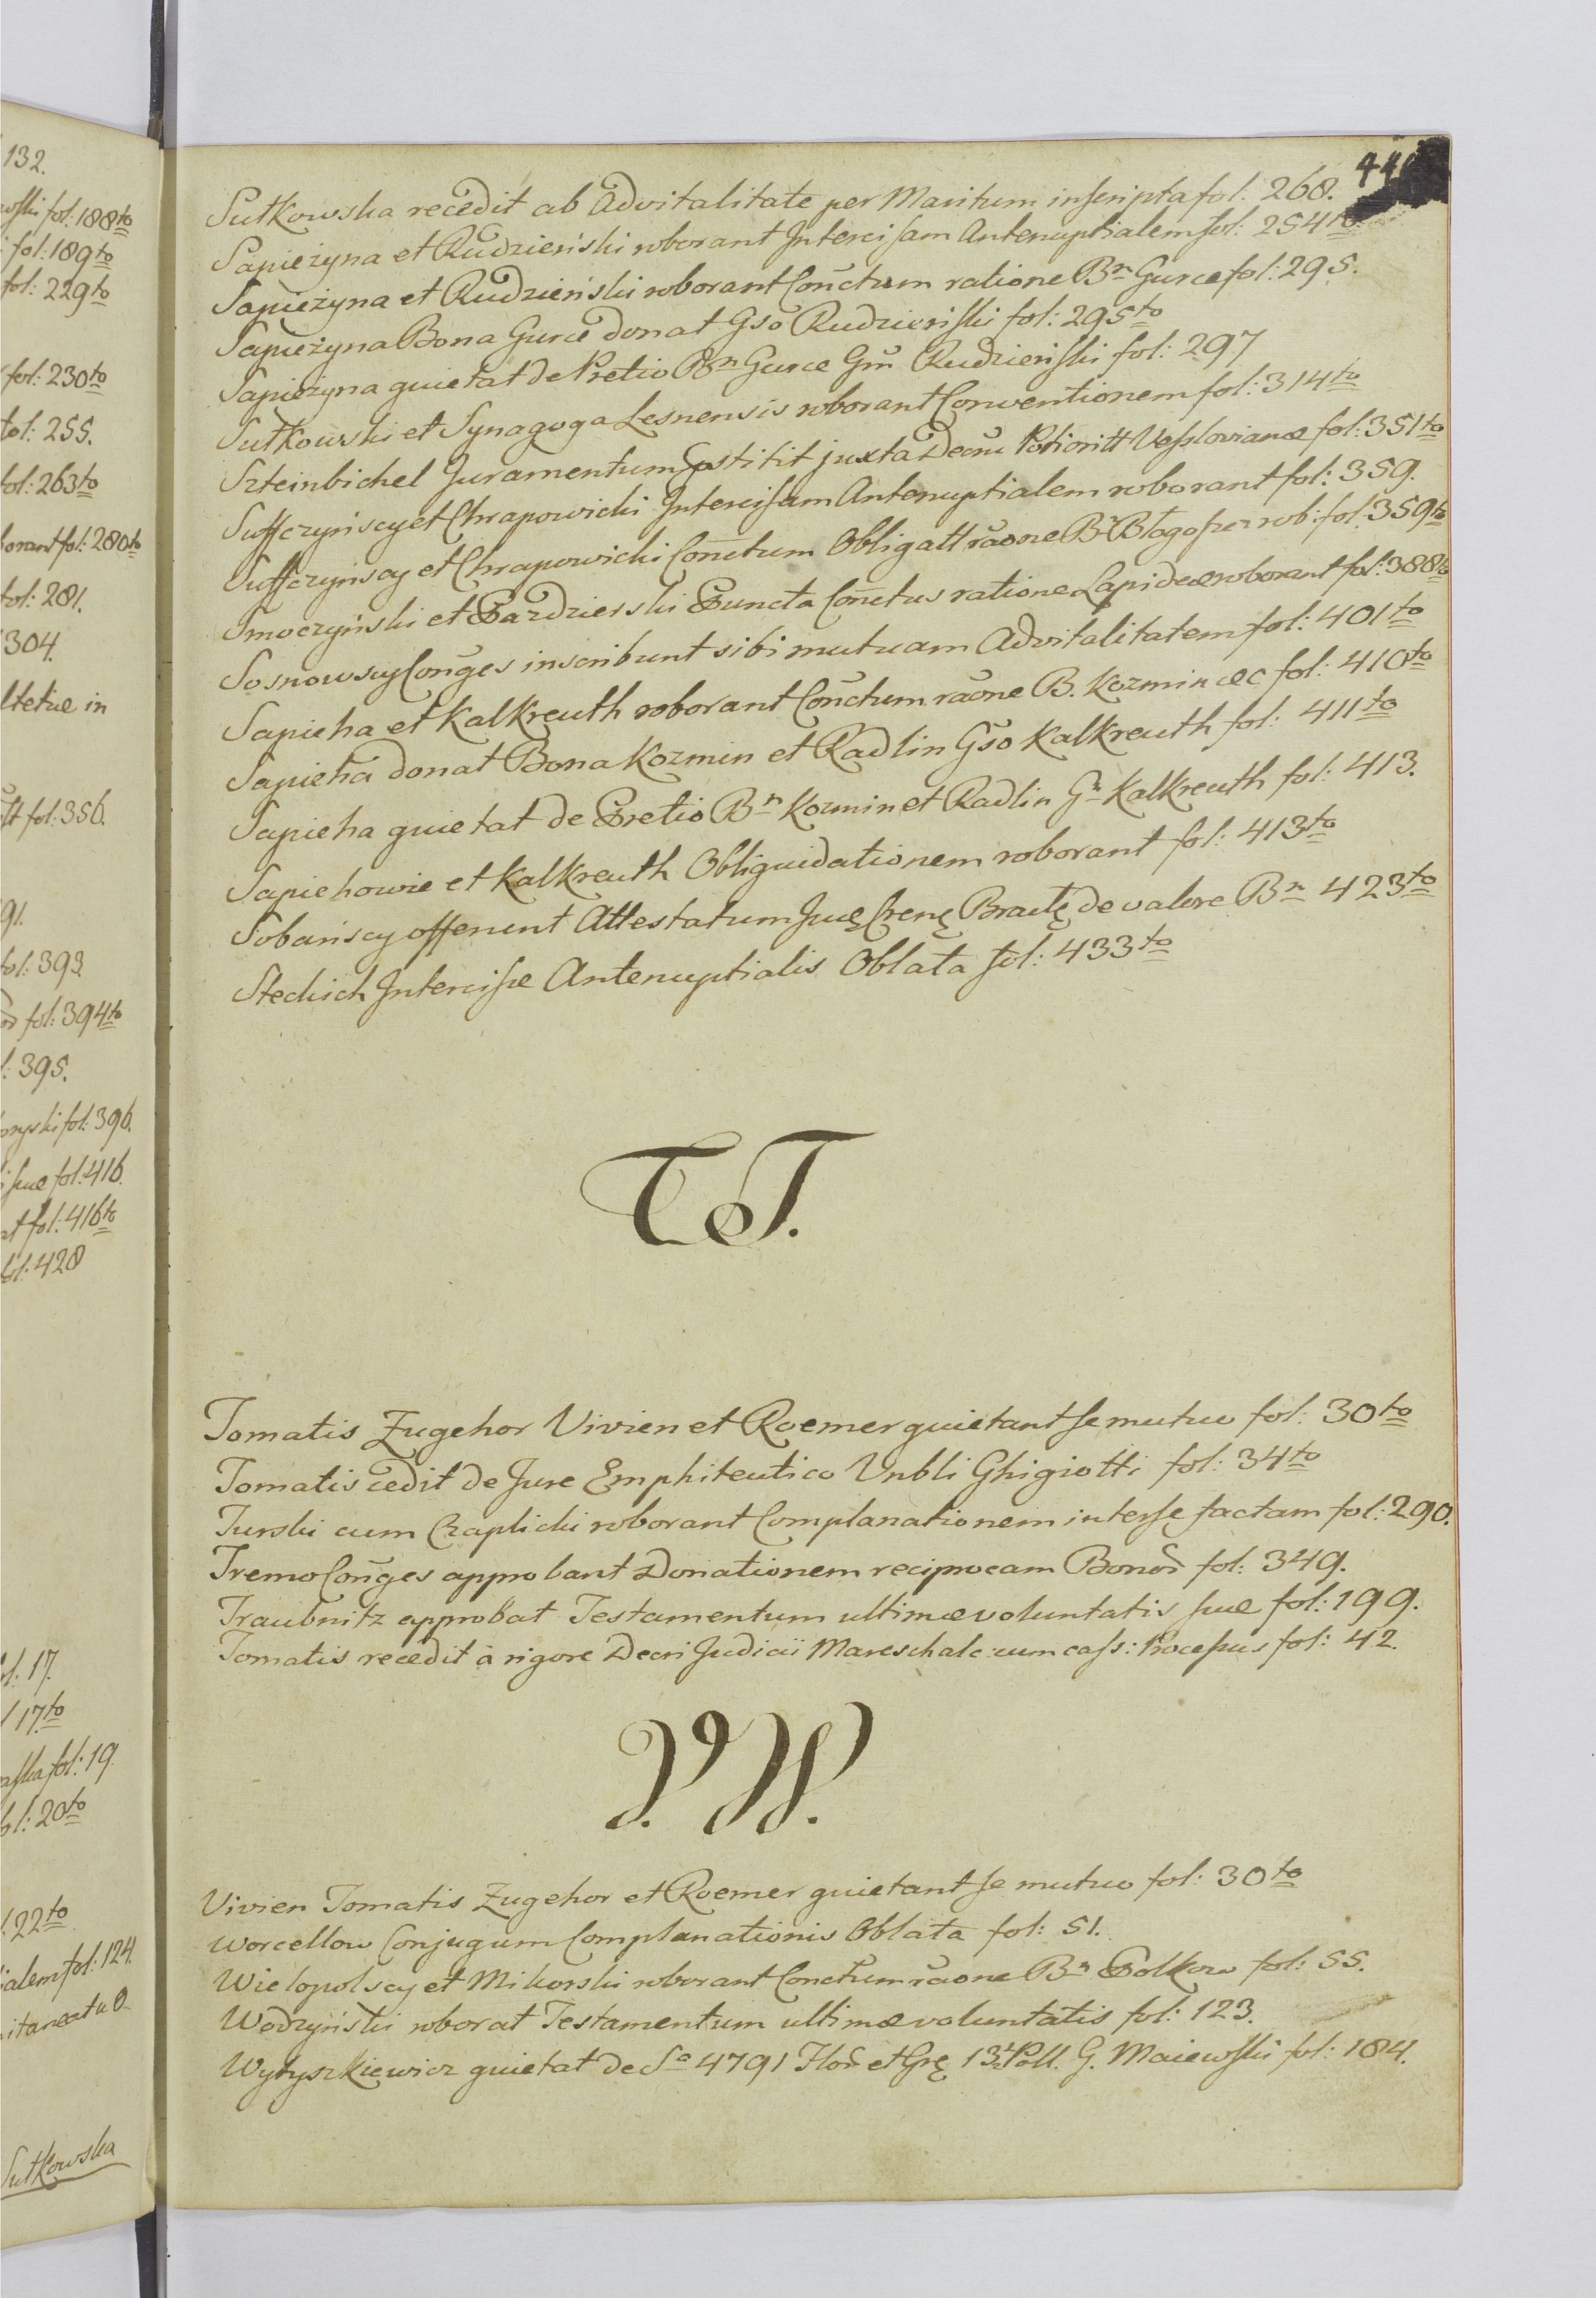 132.
wski fol: 188to
fol: 189to
fol: 229to
fol: 230to
fol: 255.
fol: 263to
borant fol: 280to
fol: 281.
304.
ltetiæ in
fol: 356.
91.
fol: 393
fol: 394to
: 395.
fol: 396.
suæ fol: 416.
at fol: 416to
fol: 428
fol: 17.
17to
aska fol: 19.
fol: 20to
22to
ialem fol: 124.
Sutkowska
Sutkowska recedit ab Advitalitate per Maritum inscripta fol: 268.
Sapieżyna et Rudzieński roborant Intercisam Antenuptialem fol: 254to
Sapieżyna et Rudzieński roborant Conctum ratione Bn Gurce fol: 295.
Sapieżyna Bona Gurce donat Gso Rudzieński fol: 295to
Sapieżyna quietat de Pretio Bn Gurce Gm Rudzieński fol: 297
Sutkowski et Synagoga Lesnensis roborant Conventionem fol: 314to
Szteinbichel Juramentum pstitit juxta Decru Potioritt Wesslovianæ fol: 351to
Suffczyńscy et Chrapowicki Intercisam Antenuptialem roborant fol: 359.
Suffczyńscy et Chrapowicki Conctum Obligatt raone Bn Błogosz rob: fol: 359to
Smoczyński et Pazdzierski Puncta Conctus ratione Lapideæ roborant fol: 388to
Sosnowscy Conges inscribunt sibi mutuam Advitalitatem fol: 401to
Sapieha et Kalkreuth roborant Conctum raone B. Kozmin &c fol: 410to
Sapieha donat Bona Kozmin et Radlin Gso Kalkreuth fol: 411to
Sapieha quietat de Pretio Bn Kozmin et Radlin Gn Kalkreuth fol: 413.
Sapiehowie et Kalkreuth Obliquidationem roborant fol: 413to
Sobańscy offerunt Attestatum Juę Crenę Bractę de valore Bn 423to
Steckich Intercisæ Antenuptialis Oblata fol: 433to
T T.
Tomatis Zugehor Vivien et Roemer quietant se mutuo fol: 30to
Tomatis cedit de Jure Emphiteutico Vnbli Ghigiotti fol: 34to
Turski cum Czaplicki roborant Complanationem inter se factam fol: 290.
Tremo Conges approbant Donationem reciprocam Bonor fol: 349.
Traubnitz approbat Testamentum ultimæ voluntatis suæ fol: 199.
Tomatis recedit à rigore Decri Judicii Mareschalc: cum cass: Processus fol: 42.
V. W.
Vivien Tomatis Zugehor et Roemer quietant se mutuo fol: 30to
Worcellow Conjugum Complanationis Oblata fol: 51.
Wielopolscy et Mikorski roborant Conctum raone Bn Polkow fol: 55.
Wodzyński roborat Testamentum ultimæ voluntatis fol: 123.
Wytyszkiewicz quietat de Sa 4791 Flor et Grę 13 Poll. G. Maiewski fol: 184.